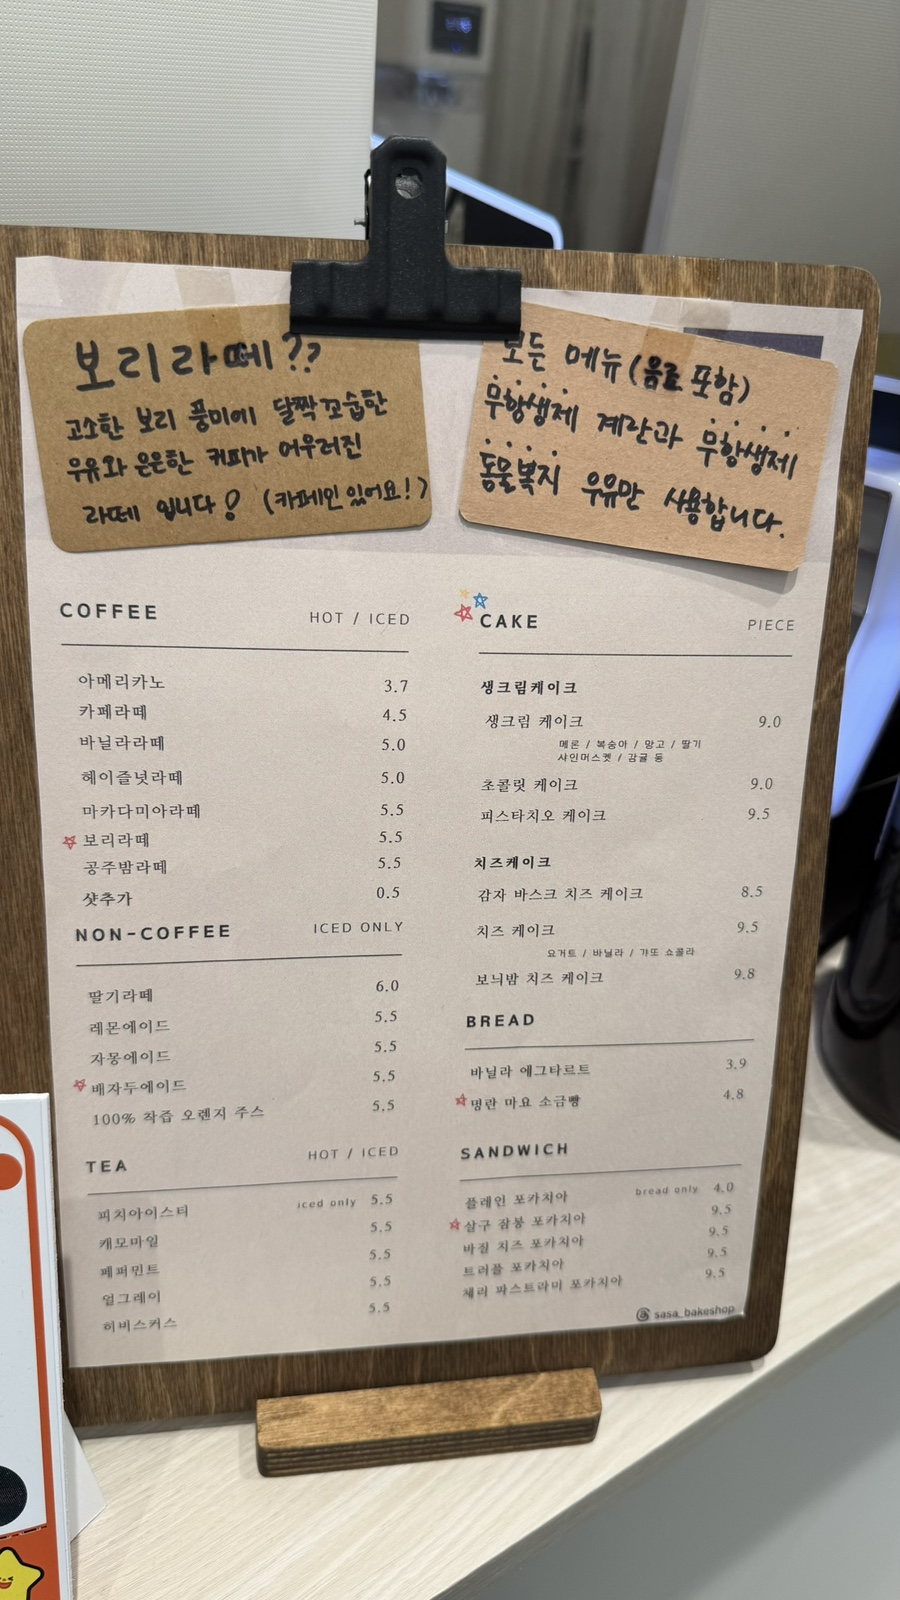 보리라떼??
고소한 보리 풍미에 달짝꼬숩한
우유와 은은한 커피가 어우러진
라떼 입니다! (카페인 있어요!)
모든 메뉴 (음료 포함)
무항생제 계란과 무항생제
동물복지 우유만 사용합니다.
COFFEE HOT / ICED
아메리카노 3.7
카페라떼 4.5
바닐라라떼 5.0
헤이즐넛라떼 5.0
마카다미아라떼 5.5
보리라떼 5.5
공주밤라떼 5.5
샷추가 0.5
NON-COFFEE ICED ONLY
딸기라떼 6.0
레몬에이드 5.5
자몽에이드 5.5
배자두에이드 5.5
100% 착즙 오렌지 주스 5.5
TEA HOT / ICED
피치아이스티 iced only 5.5
캐모마일 5.5
페퍼민트 5.5
얼그레이 5.5
히비스커스 5.5
CAKE PIECE
생크림케이크
생크림 케이크 9.0
메론 / 복숭아 / 망고 / 딸기
샤인머스켓 / 감귤 등
초콜릿 케이크 9.0
피스타치오 케이크 9.5
치즈케이크
감자 바스크 치즈 케이크 8.5
치즈 케이크 9.5
요거트 / 바닐라 / 갸또 쇼콜라
보늬밤 치즈 케이크 9.8
BREAD
바닐라 에그타르트 3.9
명란 마요 소금빵 4.8
SANDWICH
플레인 포카치아 bread only 4.0
살구 잠봉 포카치아 9.5
바질 치즈 포카치아 9.5
트러플 포카치아 9.5
체리 파스트라미 포카치아 9.5
sasa_bakeshop